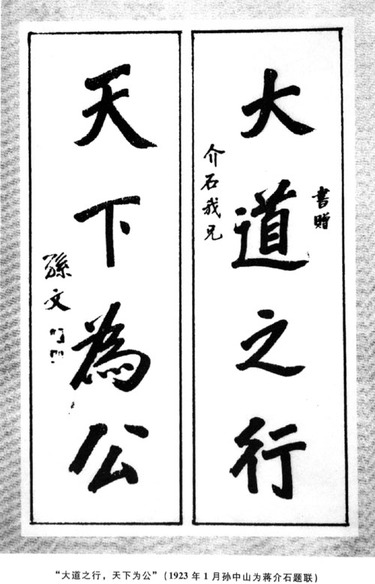 書贈
大道之行
介石我兄
天下為公
孫文
“大道之行，天下为公”（1923 年 1 月孙中山为蒋介石题联）